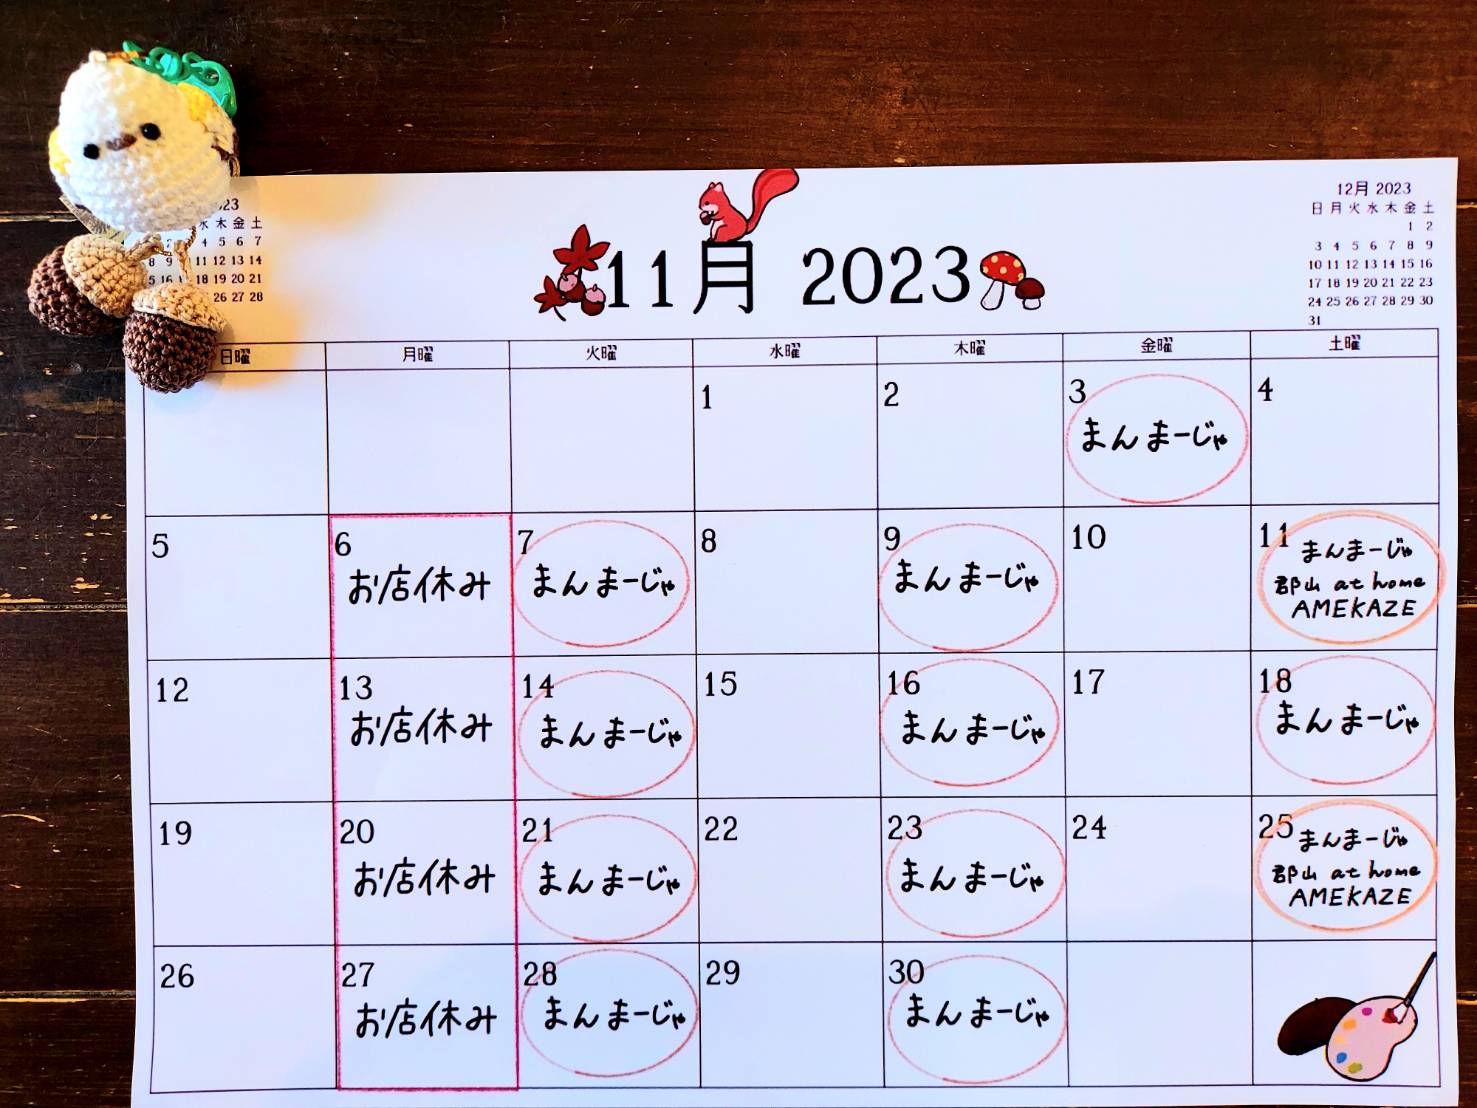 23
水 木 金 土
4 5 6 7
8 9 11 12 13 14
15 16 18 19 20 21
26 27 28
11月 2023
12月 2023
日 月 火 水 木 金 土
1 2
3 4 5 6 7 8 9
10 11 12 13 14 15 16
17 18 19 20 21 22 23
24 25 26 27 28 29 30
31
日曜 月曜 火曜 水曜 木曜 金曜 土曜
1 2 3 4
まんまーじゃ
5 6 7 8 9 10 11
お店休み まんまーじゃ まんまーじゃ まんまーじゃ
郡山 at home
AMEKAZE
12 13 14 15 16 17 18
お店休み まんまーじゃ まんまーじゃ まんまーじゃ
19 20 21 22 23 24 25
お店休み まんまーじゃ まんまーじゃ まんまーじゃ
郡山 at home
AMEKAZE
26 27 28 29 30
お店休み まんまーじゃ まんまーじゃ